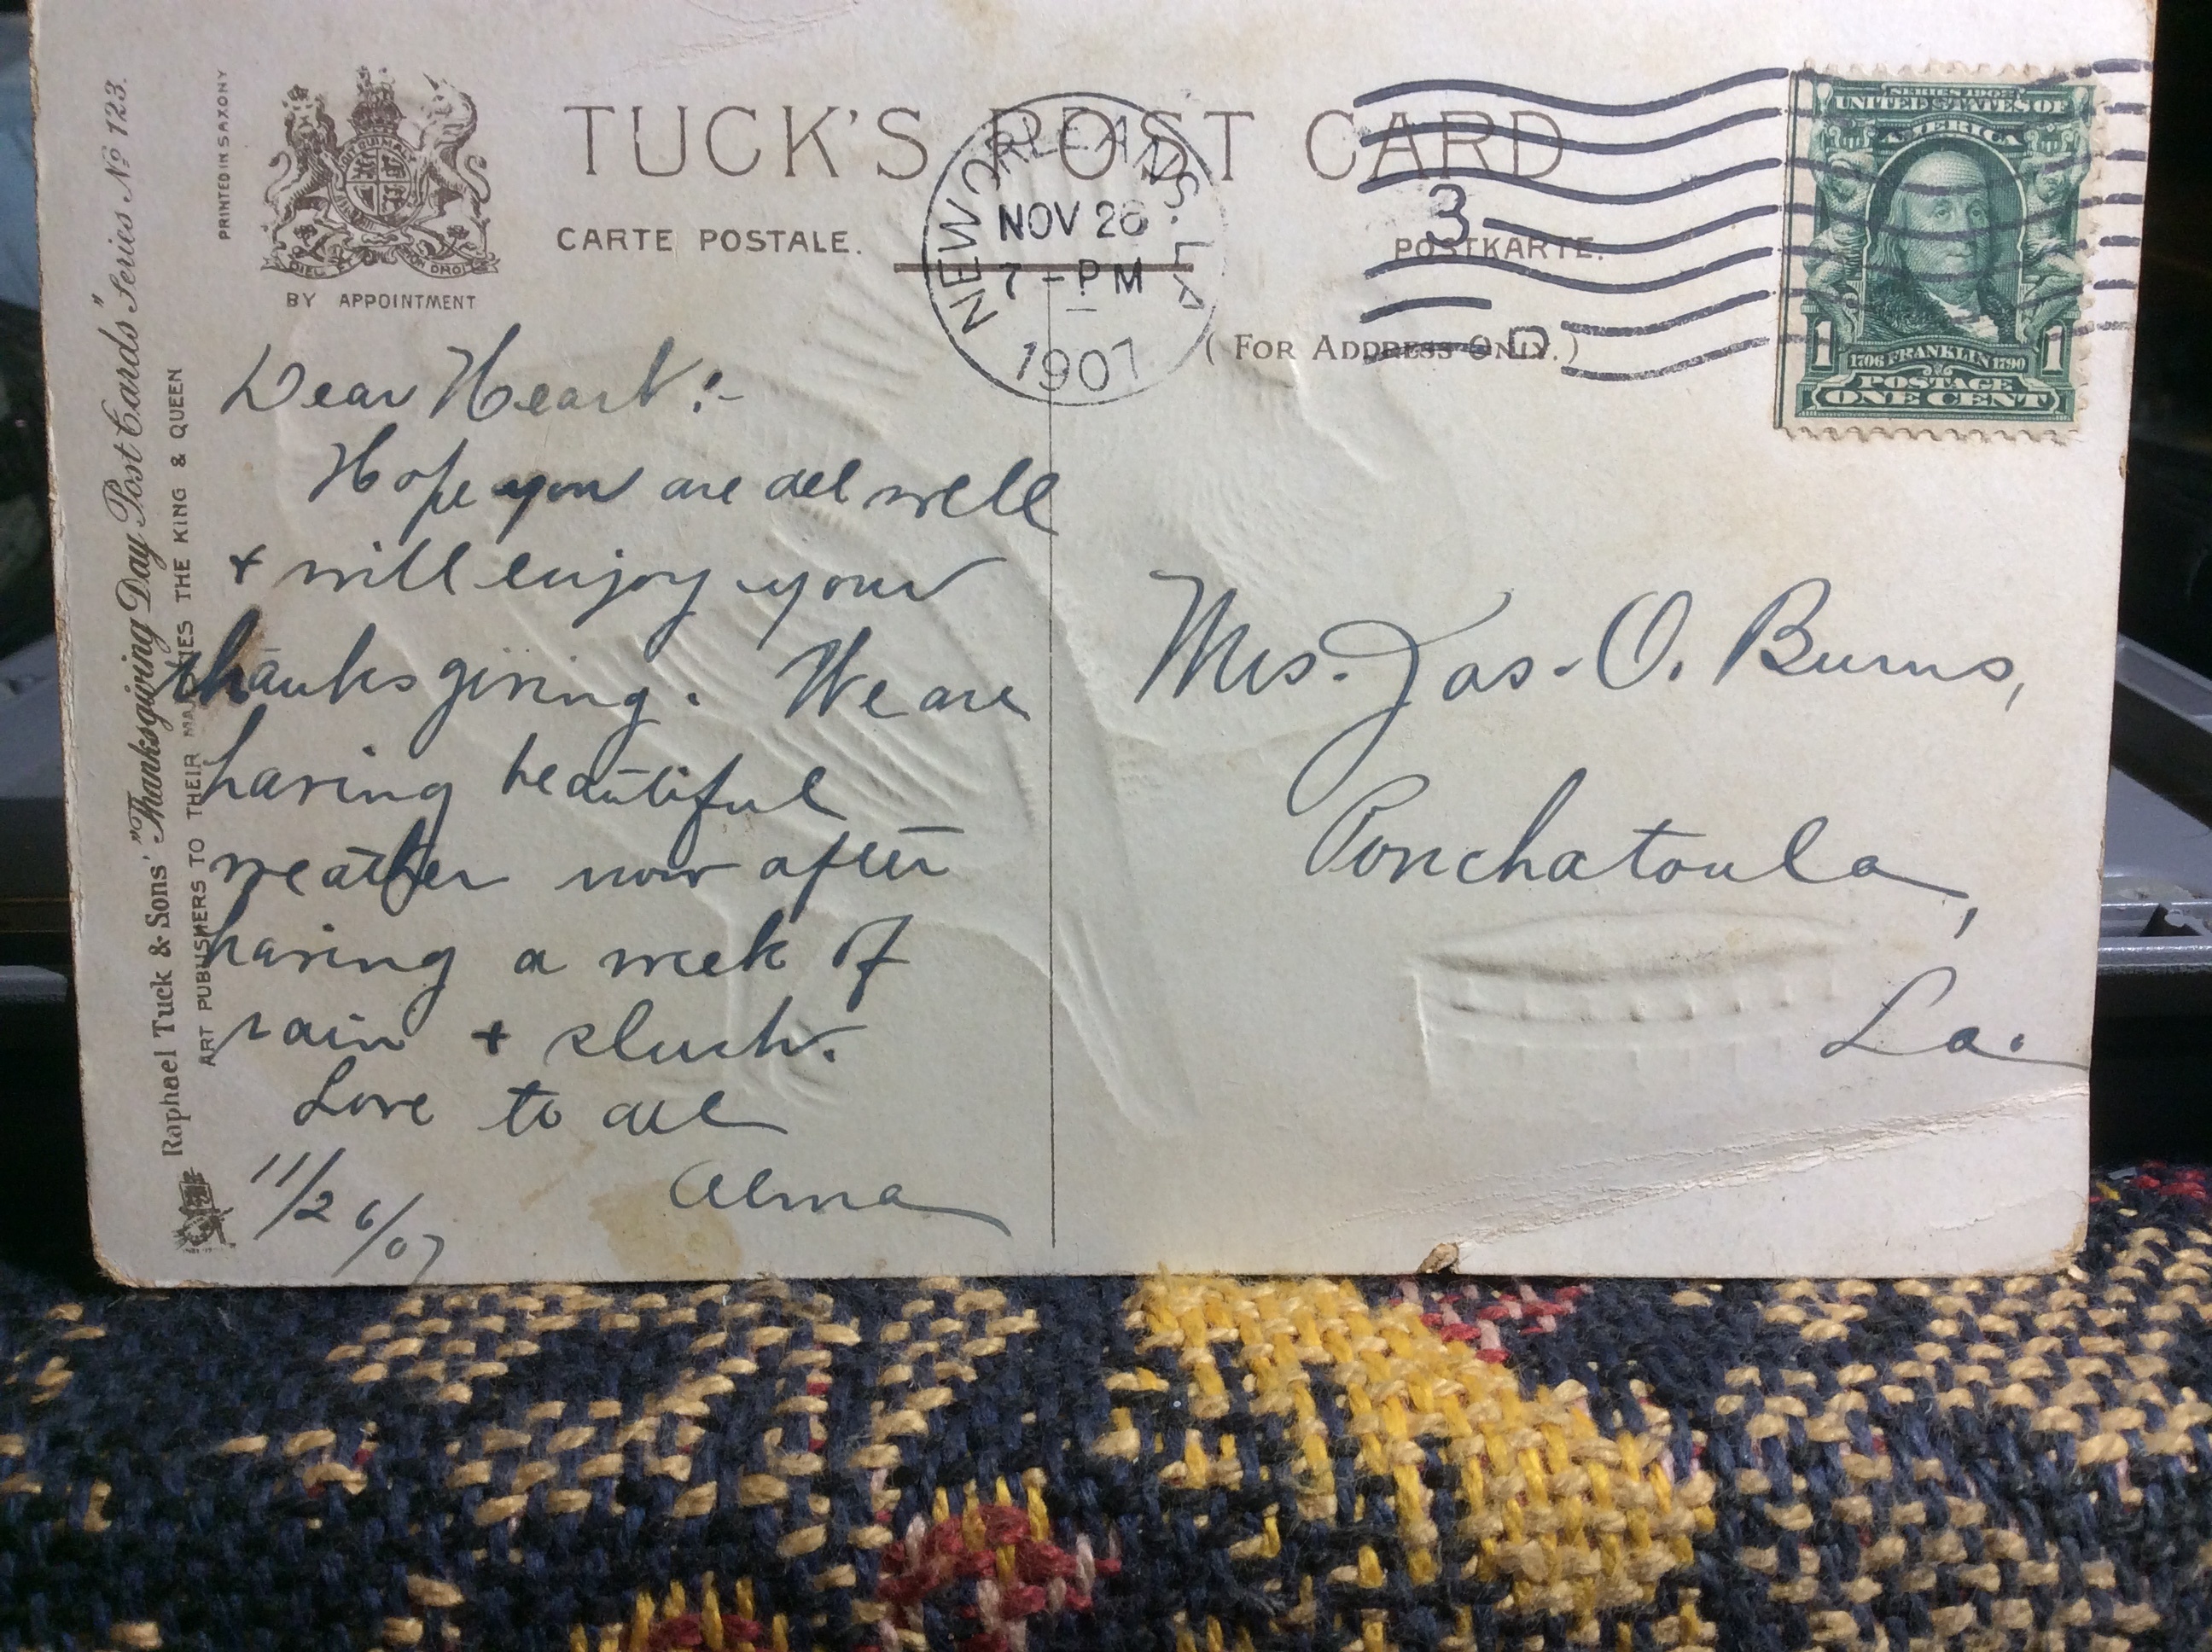 TUCK'S POST CARD
CARTE POSTALE.
POSTKARTE.
(FOR ADDRESS ONLY.)
PRINTED IN SAXONY
BY APPOINTMENT
NEW ORLEANS. LA
NOV 26
7-PM
1907
3
D
SERIES 1902
UNITED STATES OF
AMERICA
1 1706 FRANKLIN 1790 1
POSTAGE
ONE CENT
Raphael Tuck & Sons' "Thanksgiving Day Post Cards" Series No 123.
ART PUBLISHERS TO THEIR MAJESTIES THE KING & QUEEN
Dear Heart:-
Hope you are all well
+ will enjoy your
thanksgiving. We are
having beautiful
weather now after
having a week of
rain + slush.
Love to all
Alma
11/26/07
Mrs. Jas. O. Burns,
Ponchatoula,
La.